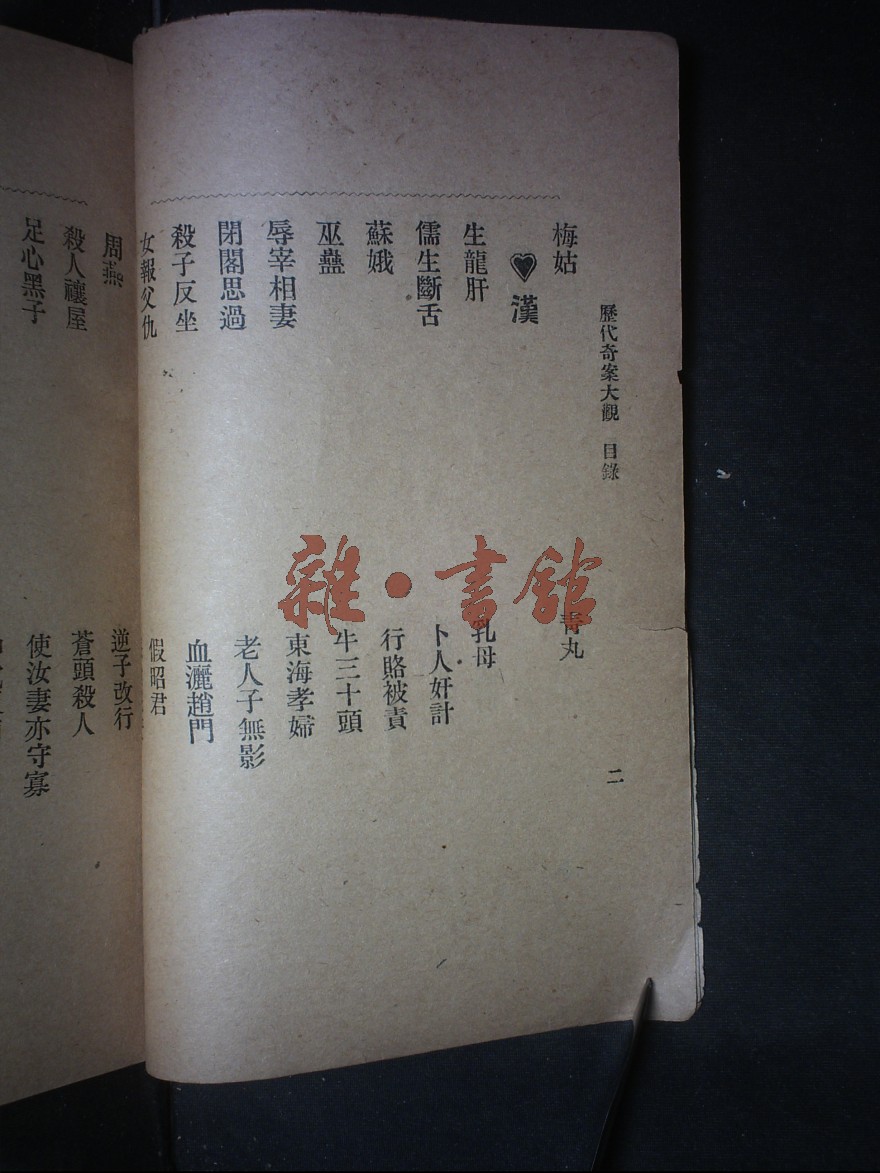 歷代奇案大觀 目錄 二
梅姑 青丸
♥ 漢
生龍肝 乳母
儒生斷舌 卜人奸計
蘇娥 行賂被責
巫蠱 牛三十頭
辱宰相妻 東海孝婦
閉閣思過 老人子無影
殺子反坐 血灑趙門
女報父仇 假昭君
周燕 逆子改行
殺人禳屋 蒼頭殺人
足心黑子 使汝妻亦守寡
雜·書館